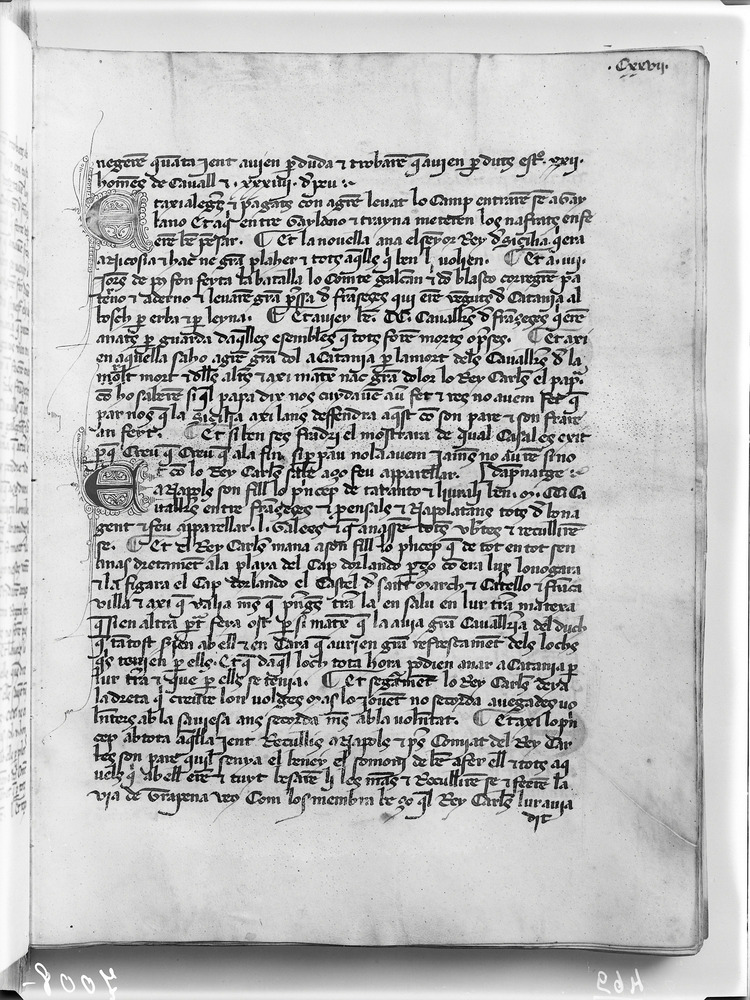 .Cxxvij.
negere quāta jent auien ꝑduda ⁊ trobarē q̄ auien ꝑduts est°. xxii.
homēs de Cauall ⁊ . xxxiiii . d̄ peu :~
E taxi alegres ⁊ pagats con agrē leuat lo Camp entrarē se a Gay
lano Et aq̄ entre Gaylano ⁊ trayna meterē los nafrats en se
erē bē pēsar. ¶ Et la nouella ana el seyor Rey d̄ Sicilia q̄ era
a ⁊ hac ne grā plaher ⁊ tots aq̄lls q̄ ben li volien. ¶ Et a .iiii.
jorn̄s de pꝰ fon feyta la batalla lo Comte galcan ⁊ dō blasco corregrē
terno ⁊ aderno ⁊ leuarē grā pressa d̄ fraseses qui erē venguts d̄ Catania al
bosch ꝑ erba ⁊ ꝑ leyna. ¶ E Et auiey bē. CC. Cauallers d̄ franseses q̄ erē
anats ꝑ guarda daq̄lles esembles q̄ tots forē morts o preses. ¶ Et axi
en aq̄uella saho agrē grā dol a Catania ꝑ la mort dels Cauallers d̄ la
mort ⁊ dells altres ⁊ axi mate nac grā dolor lo Rey Carles el papa.
cō ho saberē si q̄l papa dix nos cuydauē au fet ⁊ res no auem fet q̄
par nos q̄ la Sicilia axi lans deffendra aq̄st cō son pare ⁊ son frare
an feyt. ¶ Et si ben ses fradri el mostrara de qual Casal es exit
ꝑq̄ Creu q̄ Creu q̄ ala fin, si ꝑ pau nol auem jams no aurē si no
E t cō lo Rey Carles feu apparellar.
a Napols son fill lo prīcep de taranto ⁊ liurali bēn. M. CC Ca
uallers entre franseses ⁊ ⁊ Napolitans tots d̄ bona
gent ⁊ feu apparellar. l. Galees tots vbtes ⁊ recullirē
se. ¶ Et el Rey Carles mana a son fill lo prīcep q̄ de tot en tot sen
anas dretamēt a la playa del Cap dorlando cō era lus lo nogara
⁊ la figara el Cap dorlando el Castel d̄ sant March ⁊ Castello ⁊ franca
villa ⁊ axi q̄ valia mes q̄ prēges trā la en salu en lur trā matexa
q̄ si en altra part feya ost ꝑ si matex q̄ la auia grā Cauallria del duch
q̄ tatost serien ab ell ⁊ en Cara q̄ aurien grā refrescamēt dels lochs
q̄s tenien ꝑ ells. Et q̄ daq̄l loch tota hora podien anar a Catania ꝑ
lur trā ⁊ que ꝑ ells se tenia. ¶ Et segramēt lo Rey Carles deya
la dreta q̄ creurē lon volges mas lo jouēt no secorda auegades uo
lnters ab la sauiesa ans secorda mes ab la volūtat. ¶ Et axi lo prī
cep ab tota aq̄lla jent Recullis a Napols ⁊ prēs Comiat del Rey Car
les son pare quil senya el beney el somoni de bē afer ell ⁊ tots aq̄
uels q̄ ab ell erē ⁊ tuyt besarē li les mās ⁊ Recullirē se ⁊ feerē la
via de Trapena veg Com los membra bē ço q̄l Rey Carles lur auia
dit
7008-
469